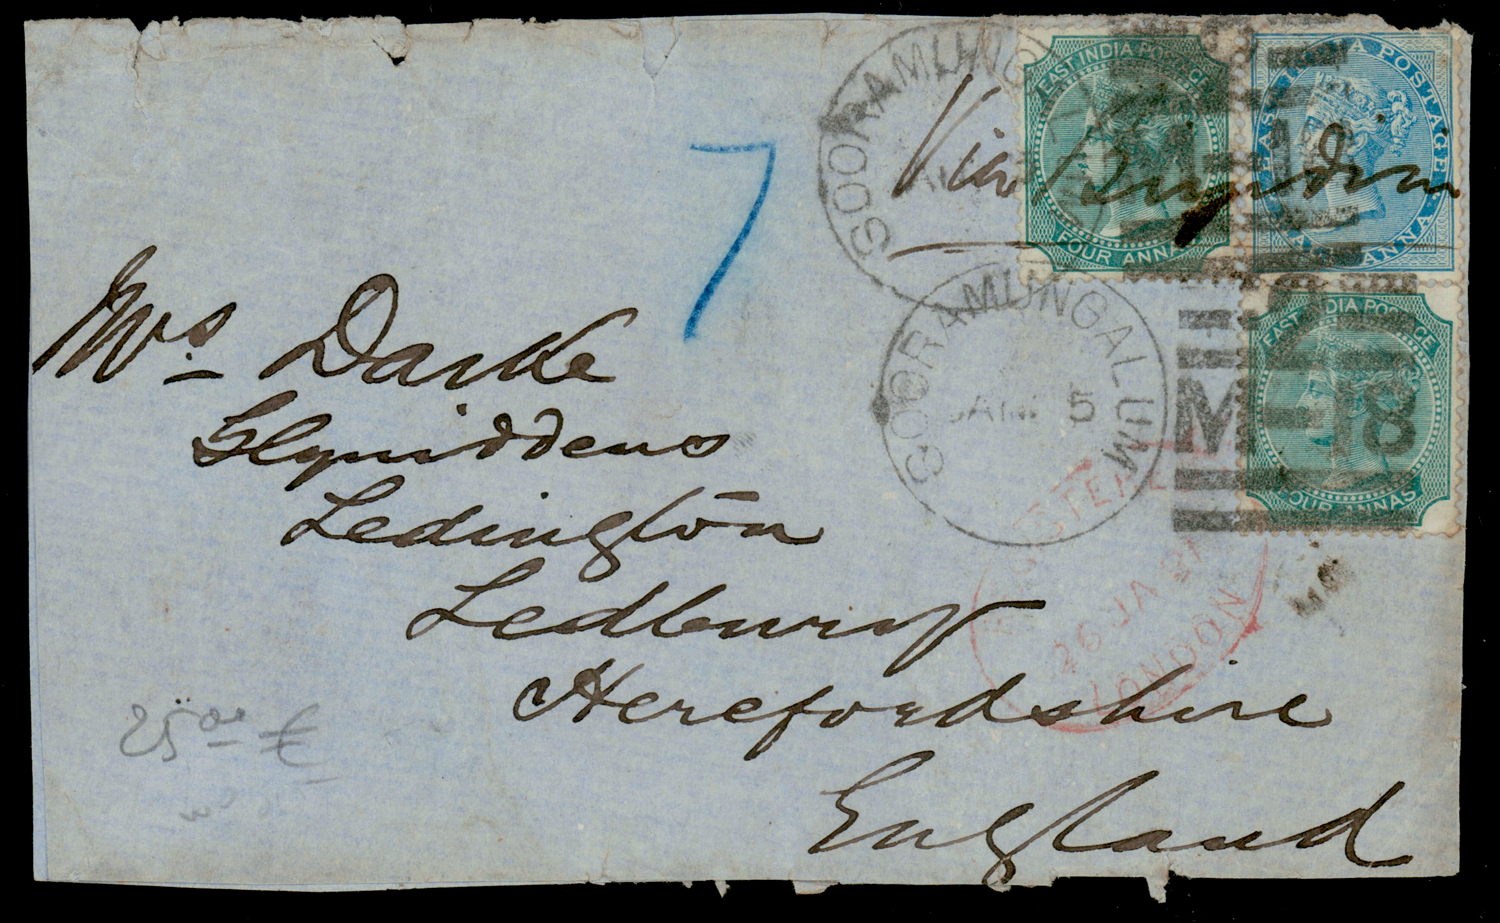 SOORAMUNGALUM
Via Brindisi
EAST INDIA POSTAGE
FOUR ANNAS
EAST INDIA POSTAGE
HALF ANNA
7
SOORAMUNGALUM
JAN 5
M-18
EAST INDIA POSTAGE
FOUR ANNAS
26 JA
LONDON
Mrs Darke
Glyniddens
Ledington
Ledbury
Herefordshire
England
25 00 €